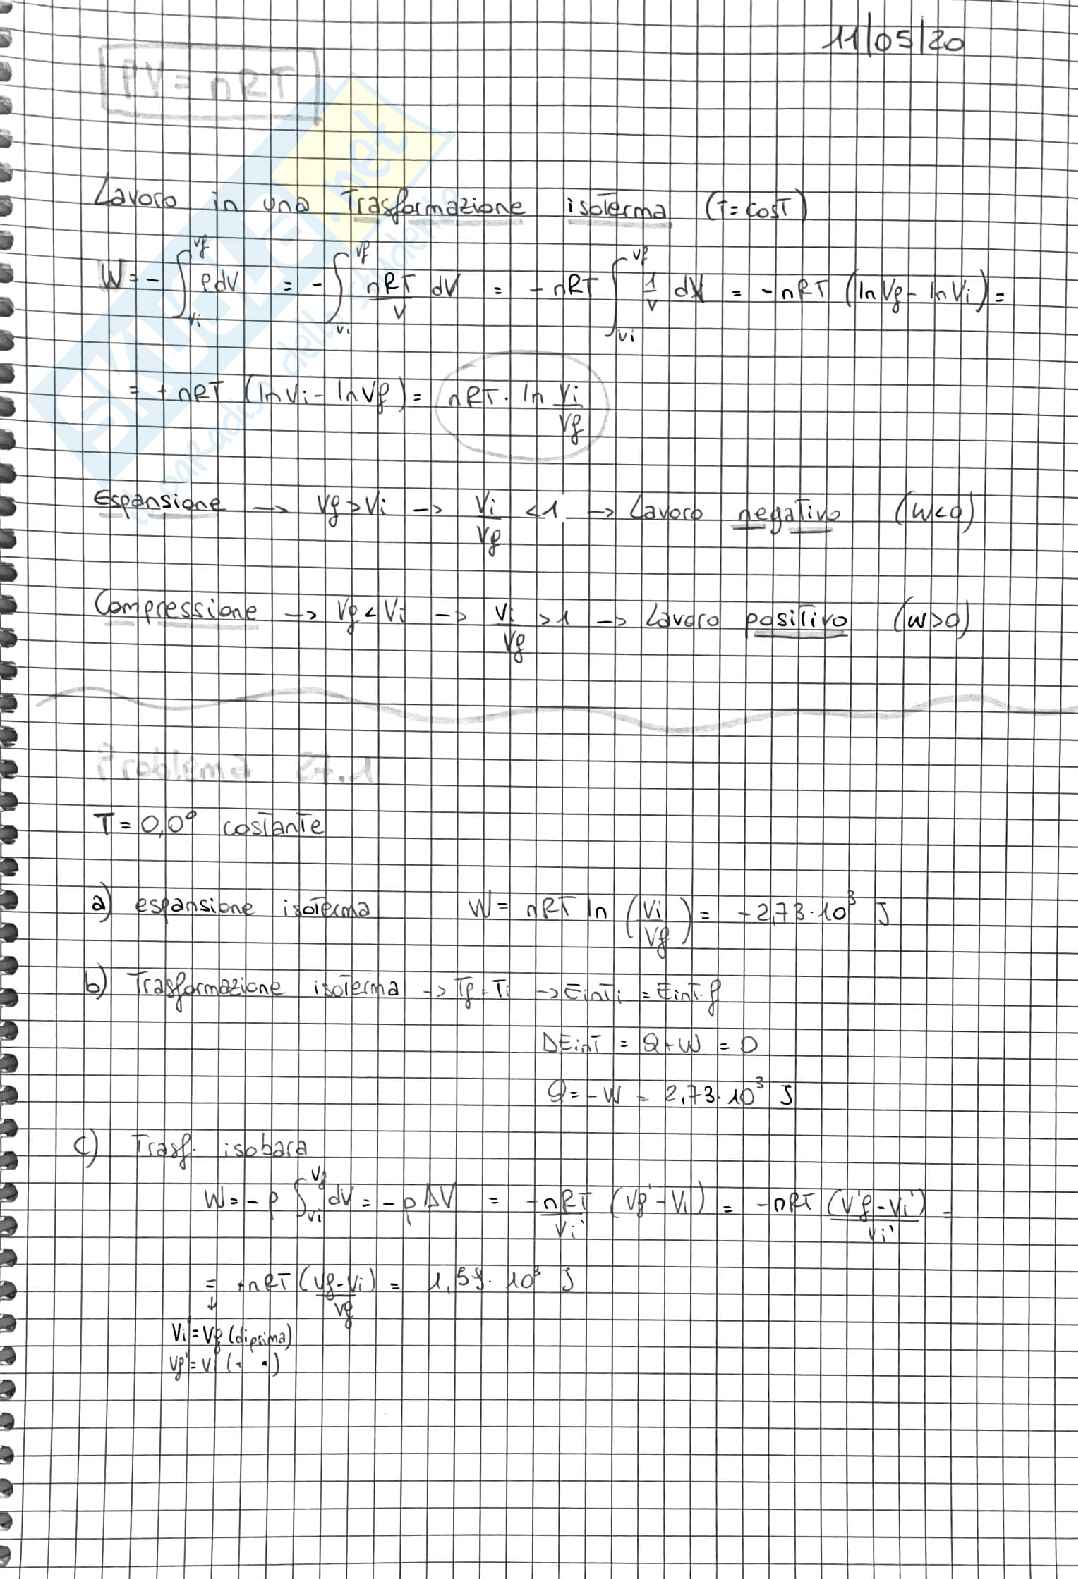 11/05/20
PV = nRT
Lavoro in una trasformazione isoterma (T = cost)
W = - ∫Vi Vf p dV = - ∫Vi Vf nRT/V dV = - nRT ∫Vi Vf 1/V dV = - nRT (ln Vf - ln Vi) =
= + nRT (ln Vi - ln Vf) = nRT · ln Vi/Vf
Espansione → Vf > Vi → Vi/Vf < 1 → Lavoro negativo (W<0)
Compressione → Vf < Vi → Vi/Vf > 1 → Lavoro positivo (W>0)
Problema 27.1
T = 0,0° costante
a) espansione isoterma W = nRT ln (Vi/Vf) = -2,73·10³ J
b) Trasformazione isoterma → Tf = Ti → Eint i = Eint f
ΔEint = Q + W = 0
Q = - W = 2,73·10³ J
c) Trasf. isobara
W = - p ∫Vi Vf dV = - p ΔV = - nRT/Vi' (Vf' - Vi') = - nRT (Vf' - Vi')/Vi' =
= + nRT (Vf - Vi)/Vf = 1,59·10³ J
Vi' = Vf (di prima)
Vf' = Vi (" ")
SKUOLA.net